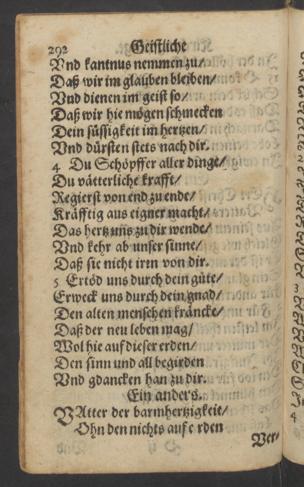 292 Geistliche
Vnd kantnus nemmen zu/
Daß wir im glauben bleiben/
Vnd dienen im geist so/
Daß wir hie mögen schmecken
Dein süssigkeit im hertzen/
Vnd dürsten stets nach dir.
4 Du Schöpffer aller dinge/
Du vätterliche krafft/
Regierst von end zu ende/
Kräfftig aus eigner macht/
Das hertz uns zu dir wende/
Vnd kehr ab unser sinne/
Daß sie nicht irrn von dir.
5 Ertöd uns durch dein güte/
Erweck uns durch dein gnad/
Den alten menschen kräncke/
Daß der neu leben mag/
Wol hie auf dieser erden/
Den sinn und all begirden
Vnd gdancken han zu dir.
Ein anders.
VAtter der barmhertzigkeit/
Ohn den nichts auf erden
Ver-